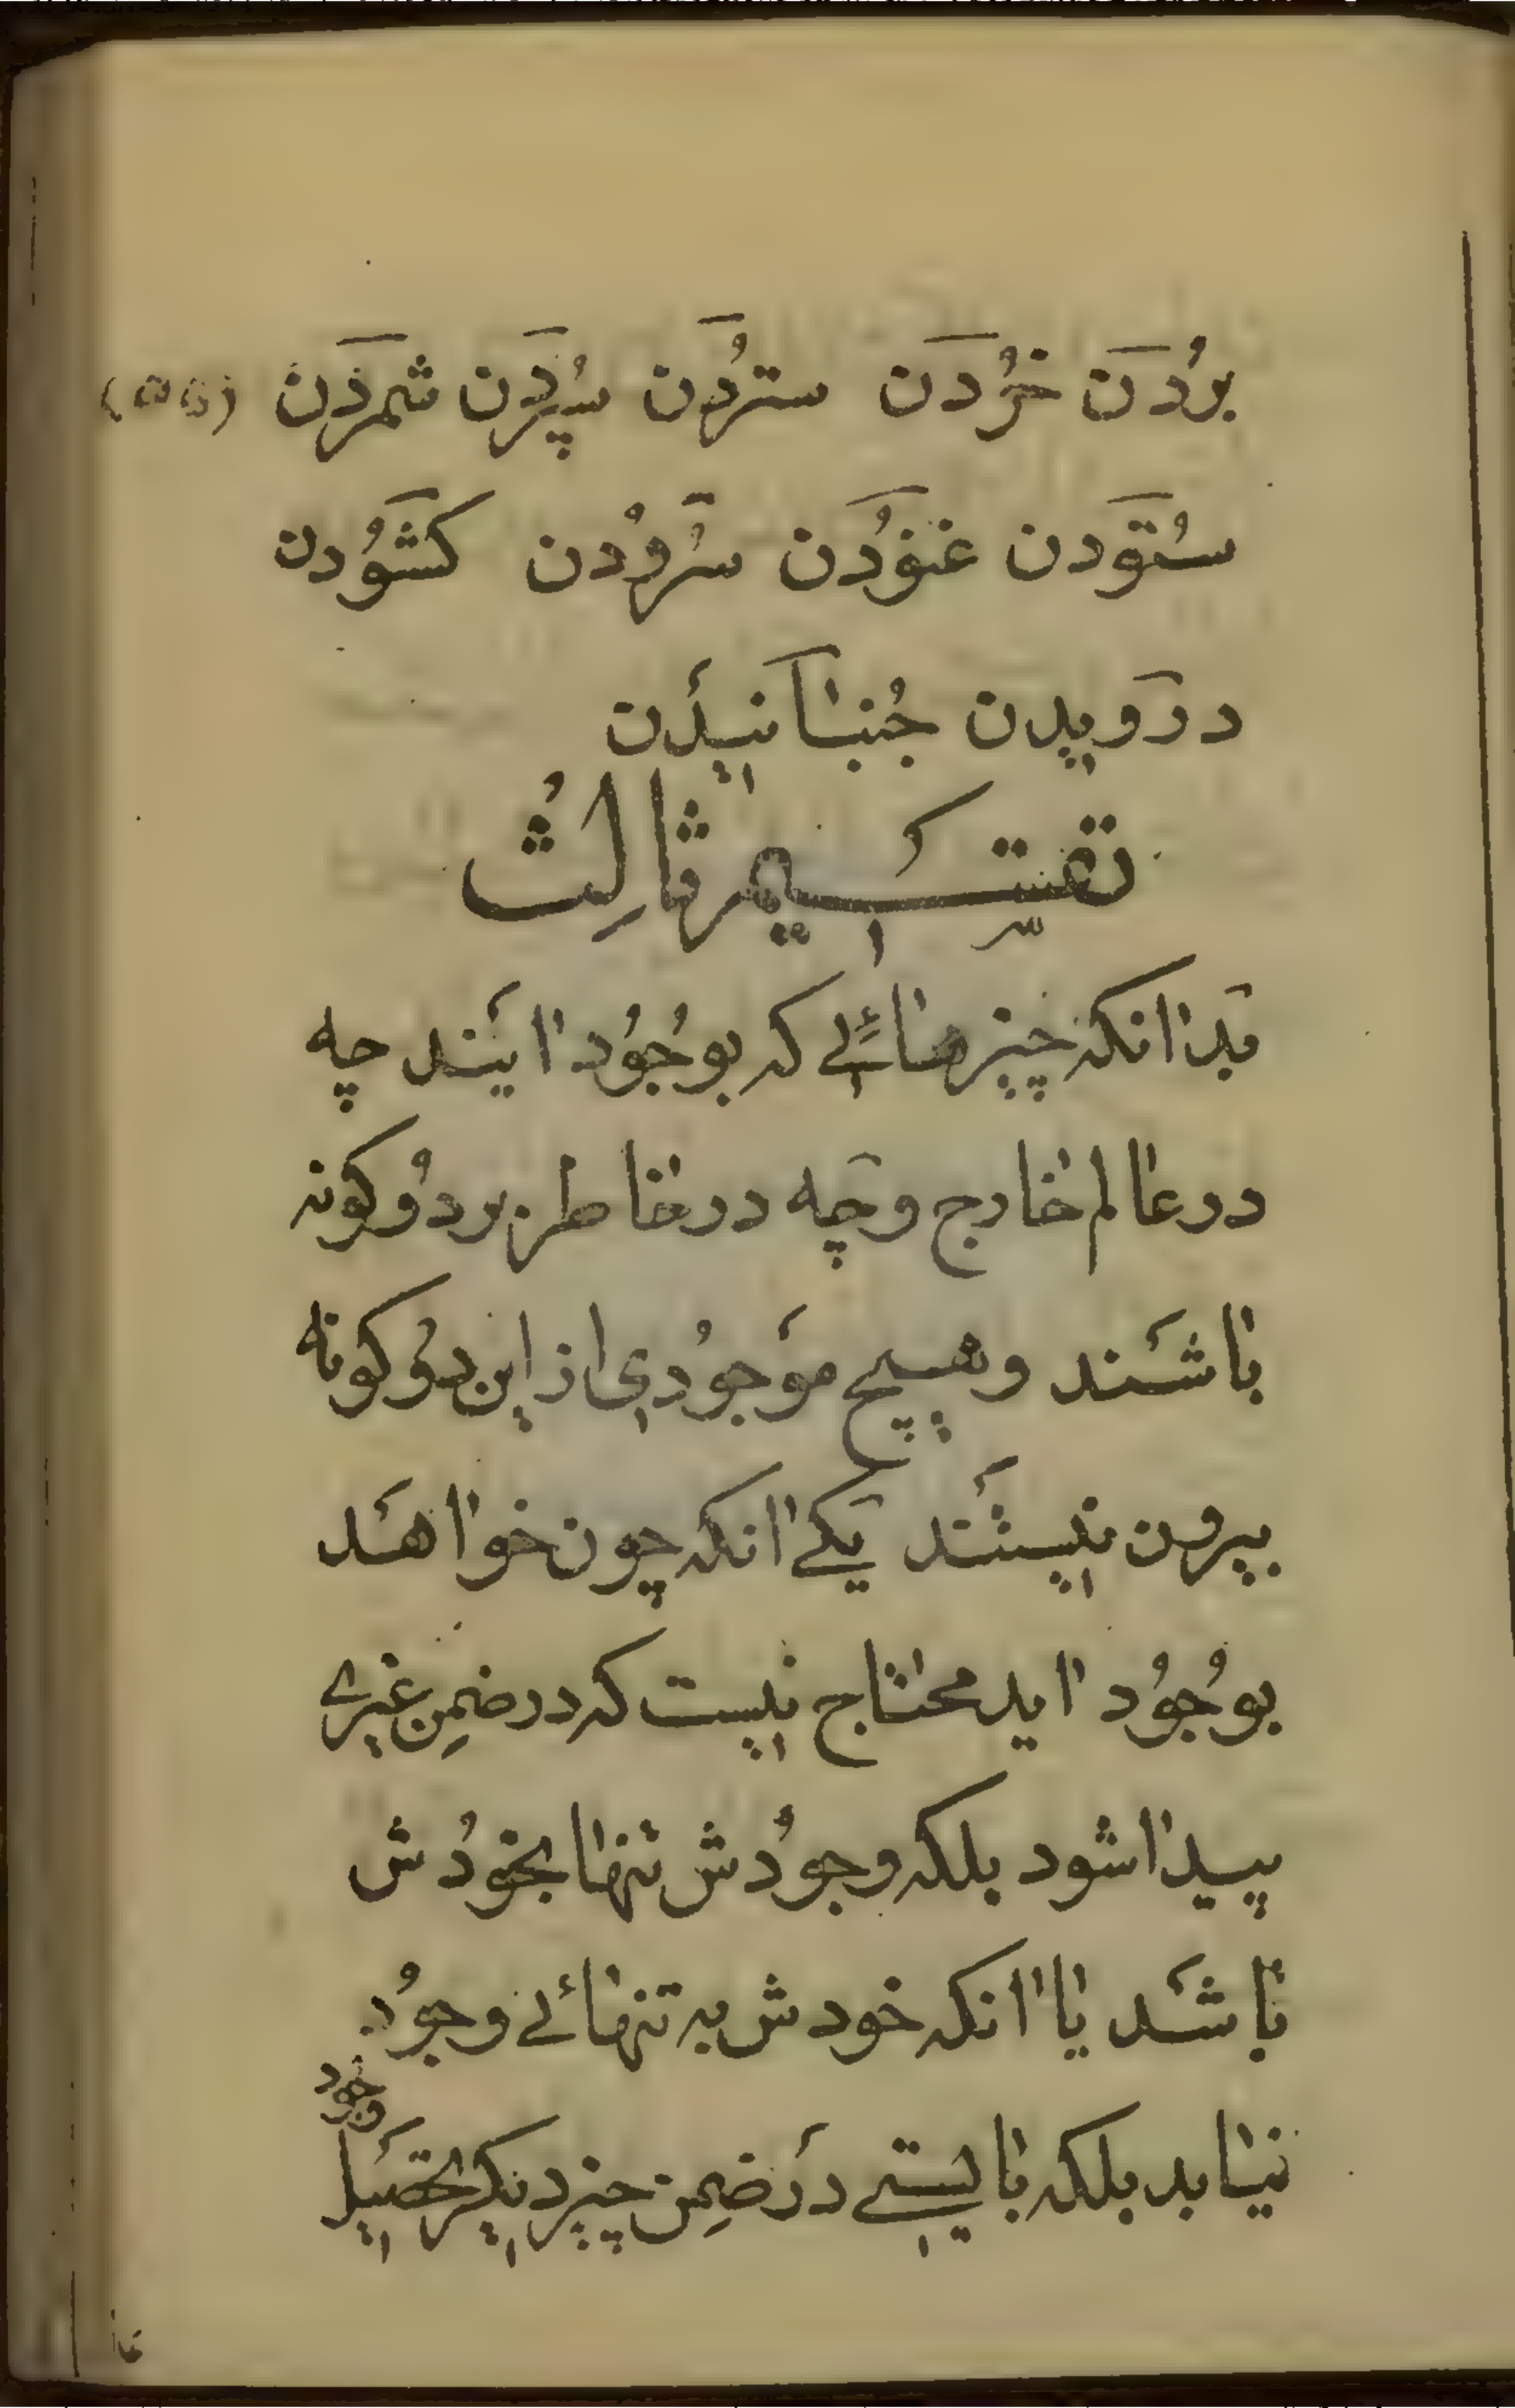 بُردَن خُردَن ستُردَن سپُردَن شمردَن
ستُودن غنُودَن سُرُودن کشَوُدن
دروَیدن جُنبانیدَن
تقسیم ثالِثُ
بَدانکه چیزهائی که بوُجوُد ایَند چه
در عالم خارج و چَه در خاطر بر دُو کونه
باشَند و هیچ موَجوُدی از این دوُ کونه
بیرون نیستَند یَکے انکه چون خواهَد
بوُجوُد اید محتاج نیست که در ضمِن غیرے
پیدا شود بلکه وجوُدش تنها بخوُدش
باشَد یا انکه خودش به تنهائے وجوُد
نیابد بلکه بایستے دَر ضمِن چیز دیکر تحصیَل
وجود